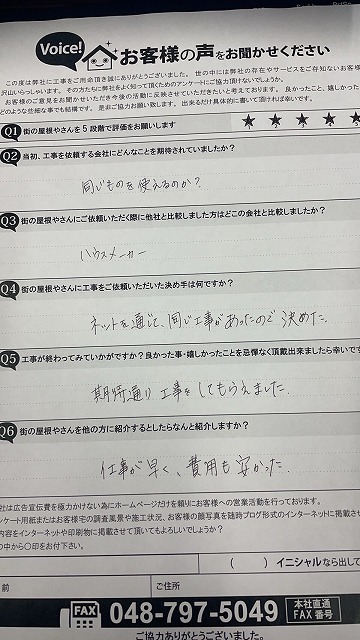 Voice!
お客様の声をお聞かせください
この度は弊社に工事をご用命頂き誠にありがとうございました。世の中には弊社の存在やサービスをご存知ないお客様
沢山いらっしゃいます。その方たちに弊社をよく知って頂くためのアンケートにご協力頂けないでしょうか。
お客様のご意見をお聞かせいただき今後の活動に反映させていただきたいと考えております。良かったこと、嬉しかった
どのような些細な事でも結構です。是非ご協力お願い致します。出来るだけ具体的に書いて頂ければ幸いです。
Q1 街の屋根やさんを5段階で評価をお願いします ★ ★ ★ ★ ★
Q2 当初、工事を依頼する会社にどんなことを期待されていましたか?
同じものを使えるのか?
Q3 街の屋根やさんにご依頼いただく際に他社と比較しました方はどこの会社と比較しましたか?
ハウスメーカー
Q4 街の屋根やさんに工事をご依頼いただいた決め手は何ですか?
ネットを通じて、同じ工事があったので決めた.
Q5 工事が終わってみていかがですか?良かった事・嬉しかったことを忌憚なく頂戴出来ましたら幸いです
期待通り工事をしてもらえました.
Q6 街の屋根やさんを他の方に紹介するとしたらなんと紹介しますか?
仕事が早く、費用も安かった.
社は広告宣伝費を極力かけない為にホームページだけを頼りにお客様への営業活動を行っております。
ンケート用紙またはお客様宅の調査風景や施工状況、お客様の顔写真を随時ブログ形式のインターネットに掲載させ
内容をインターネットや印刷物に掲載させて頂いてもよろしいでしょうか?
の中から〇印をお付下さい。
( ) イニシャルなら出して
前
ご住所
FAX 048-797-5049 本社直通 FAX番号
ご協力ありがとうございまし